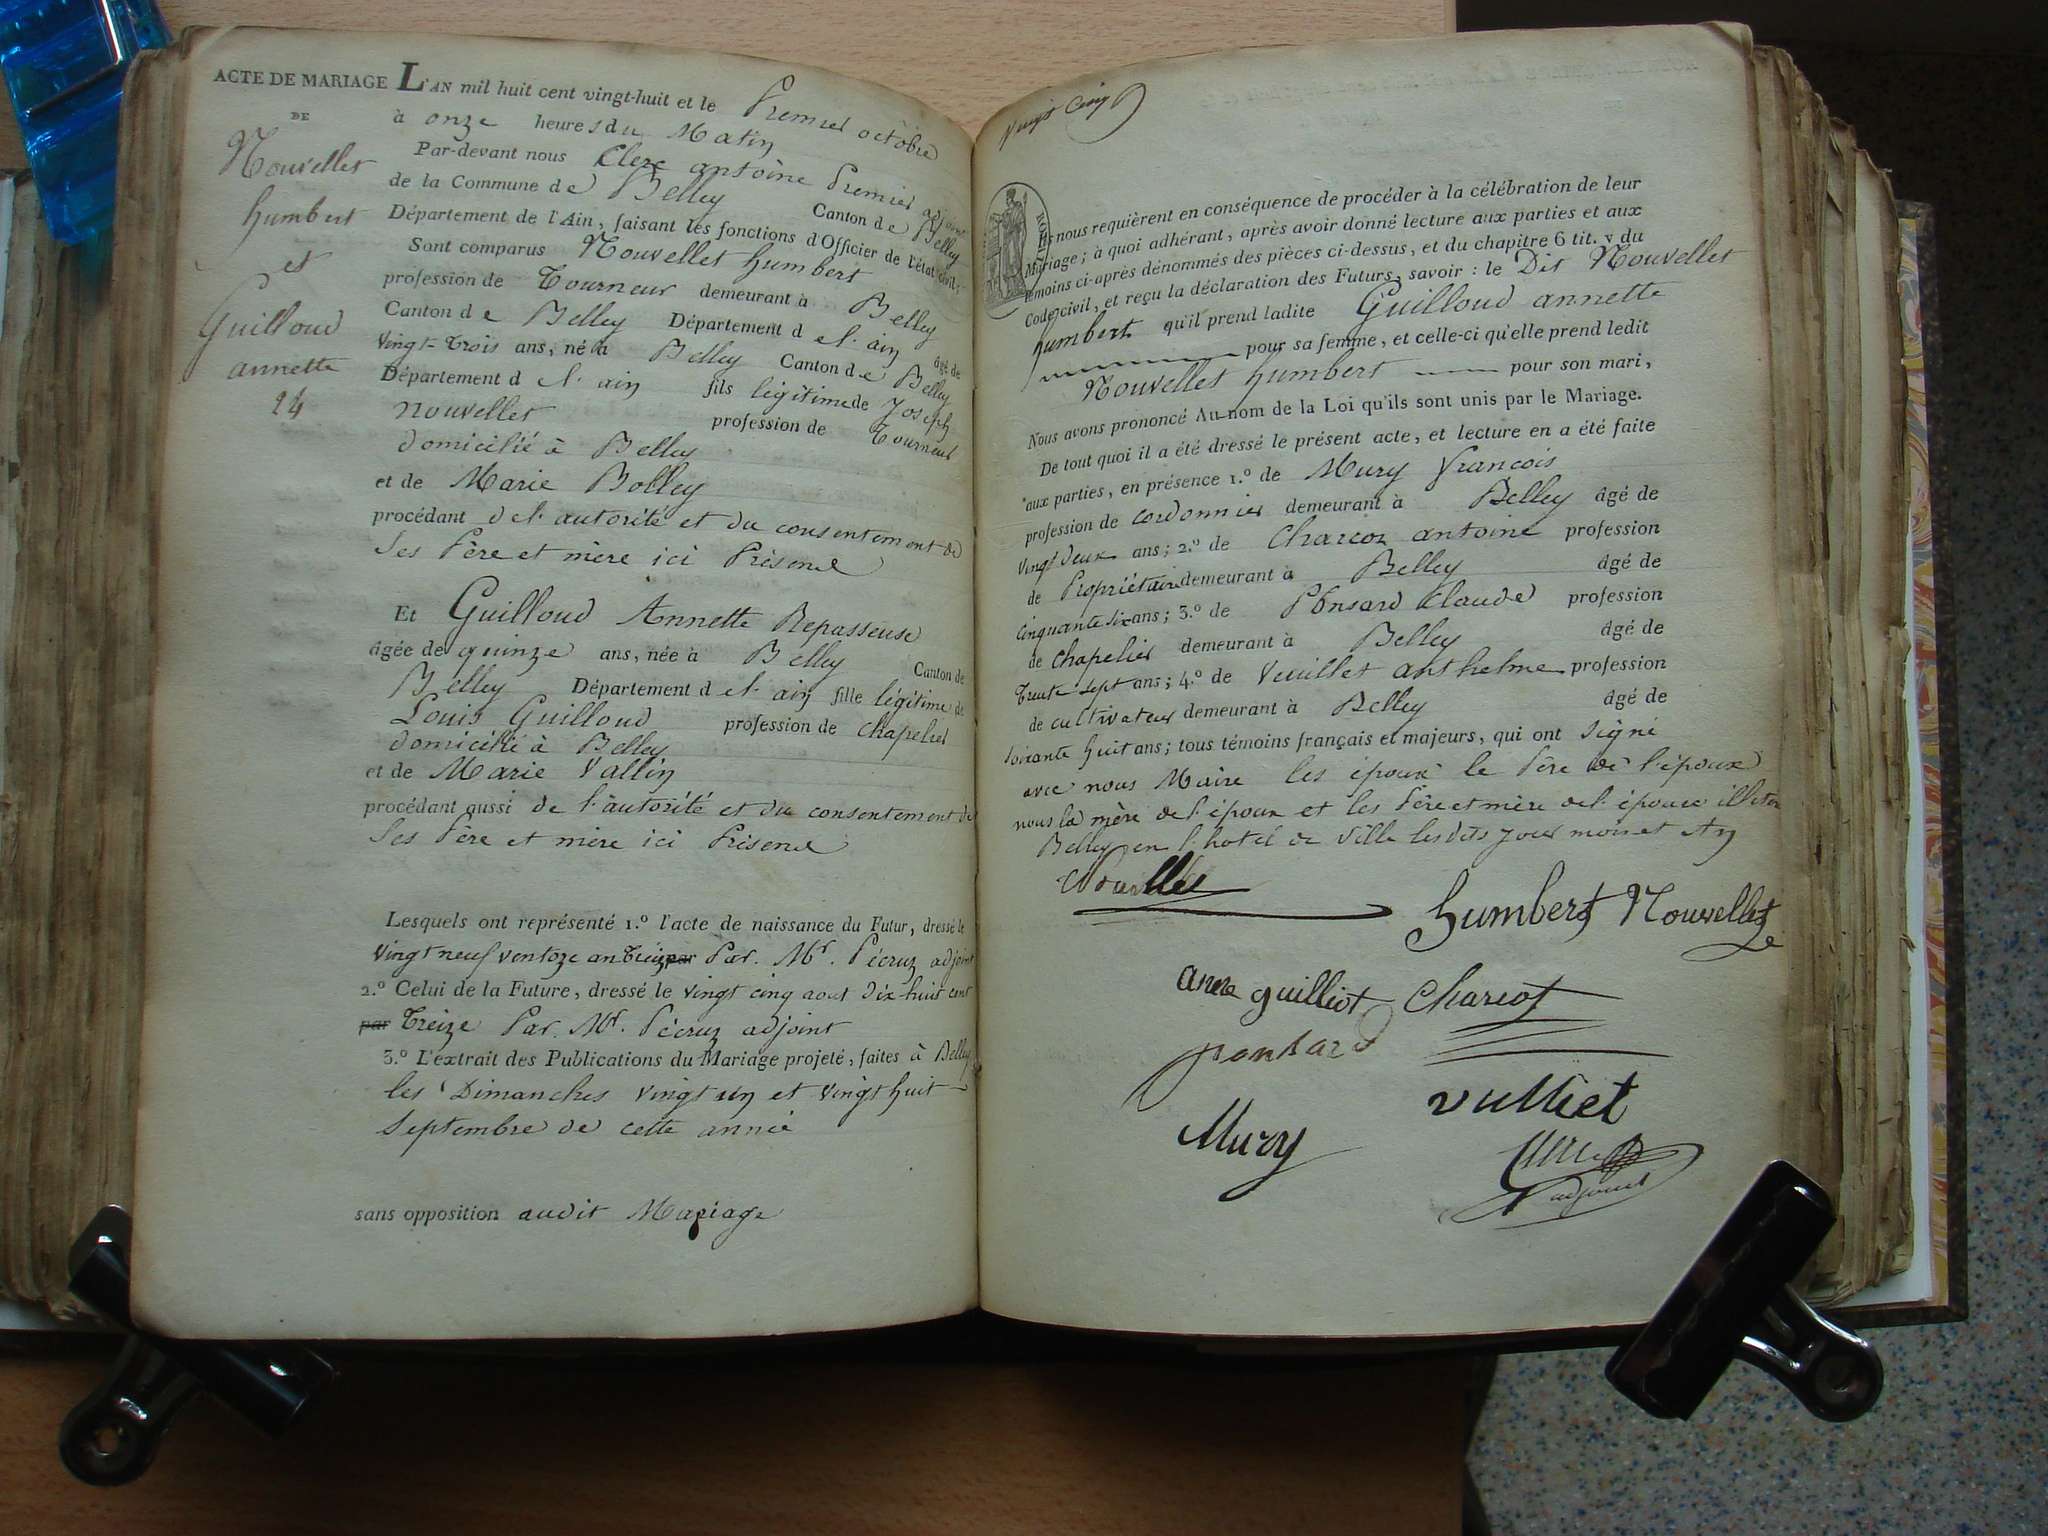 ACTE DE MARIAGE L'AN mil huit cent vingt-huit et le Premier octobre
DE
à onze heures du Matin
Nouvellet
humbert
et
Guilloud
annette
24
Par-devant nous Clerc antoine Premier adjoint
de la Commune de Belley Canton de Belley
Département de l'Ain, faisant les fonctions d'Officier de l'état civil,
Sont comparus Nouvellet humbert
profession de Tourneur demeurant à Belley
Canton de Belley Département de l'ain âgé de
vingt-trois ans, né à Belley Canton de Belley
Département de l'ain fils légitime de Joseph
nouvellet profession de Tourneur
domicilié à Belley
et de Marie Bolley
procédant de l'autorité et du consentement de
Ses Père et mère ici Présend
Et Guilloud Annette Repasseuse
âgée de quinze ans, née à Belley Canton de
Belley Département de l'ain fille légitime de
Louis Guilloud profession de chapelier
domicilié à Belley
et de Marie Vallin
procédant aussi de l'autorité et du consentement de
Ses Père et mère ici Présend
Lesquels ont représenté 1.º l'acte de naissance du Futur, dressé le
vingt neuf ventoze an treize par Par. Mr. Pécruz adjoint
2.º Celui de la Future, dressé le vingt cinq aout dix huit cent
par Treize Par. Mr. Pécruz adjoint
3.º L'extrait des Publications du Mariage projeté, faites à Belley
les Dimanches vingt un et vingt huit
Septembre de cette année
sans opposition audit Mariage
vingt cinq
nous requièrent en conséquence de procéder à la célébration de leur
Mariage ; à quoi adhérant, après avoir donné lecture aux parties et aux
témoins ci-après dénommés des pièces ci-dessus, et du chapitre 6 tit. v du
Code civil, et reçu la déclaration des Futurs, savoir : le Dit Nouvellet
humbert qu'il prend ladite Guilloud annette
pour sa femme, et celle-ci qu'elle prend ledit
Nouvellet humbert pour son mari,
Nous avons prononcé Au nom de la Loi qu'ils sont unis par le Mariage.
De tout quoi il a été dressé le présent acte, et lecture en a été faite
aux parties, en présence 1.º de Mury François
profession de cordonnier demeurant à Belley âgé de
vingt deux ans ; 2.º de Charcot antoine profession
de Propriétaire demeurant à Belley âgé de
cinquante six ans ; 3.º de Ponsard Claude profession
de chapelier demeurant à Belley âgé de
trente sept ans ; 4.º de Veuillet anthelme profession
de cultivateur demeurant à Belley âgé de
soixante huit ans ; tous témoins français et majeurs, qui ont signé
avec nous Maire les époux le Père de l'époux
nous la mère de l'époux et les Père et mère de l'épouse
Belley en l'hotel de Ville lesdits jour mois et An
Nouvellet
humbert Nouvellet
anne guilliot Charcot
ponsard
vulliet
Mury
Clerc
adjoint